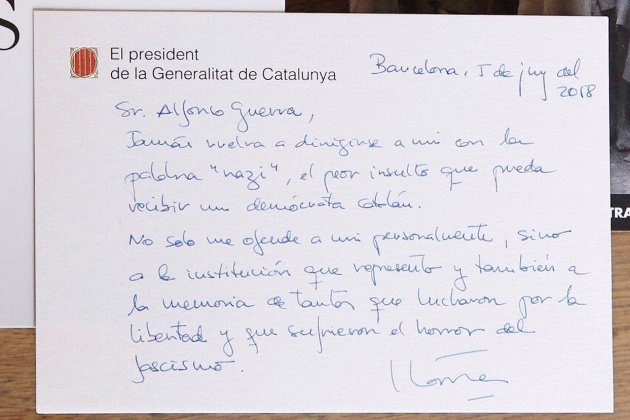 S
El president
de la Generalitat de Catalunya
Barcelona, 5 de juny del
2018
Sr. Alfonso Guerra,
Jamás vuelva a dirigirse a mi con la
palabra "nazi", el peor insulto que pueda
recibir un demócrata catalán.
No solo me ofende a mi personalmente, sino
a la institución que represento y también a
la memoria de tantos que lucharon por la
libertad y que sufrieron el horror del
fascismo.
TRA